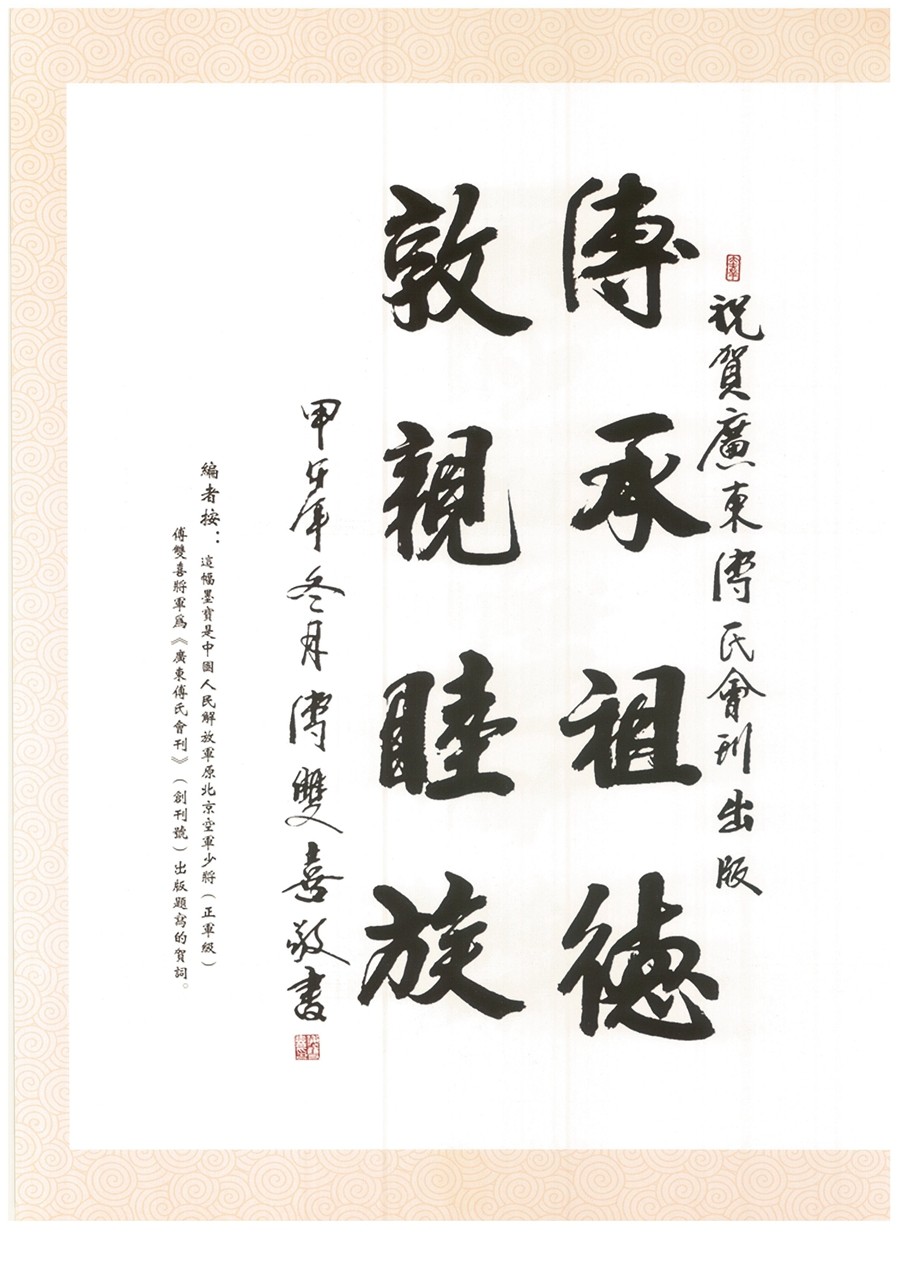 祝賀廣東傅氏會刊出版
傳承祖德
敦親睦族
甲午年冬月傅雙喜敬書
編者按：這幅墨寶是中國人民解放軍原北京空軍少將（正軍級）
傅雙喜將軍爲《廣東傅氏會刊》（創刊號）出版題寫的賀詞。